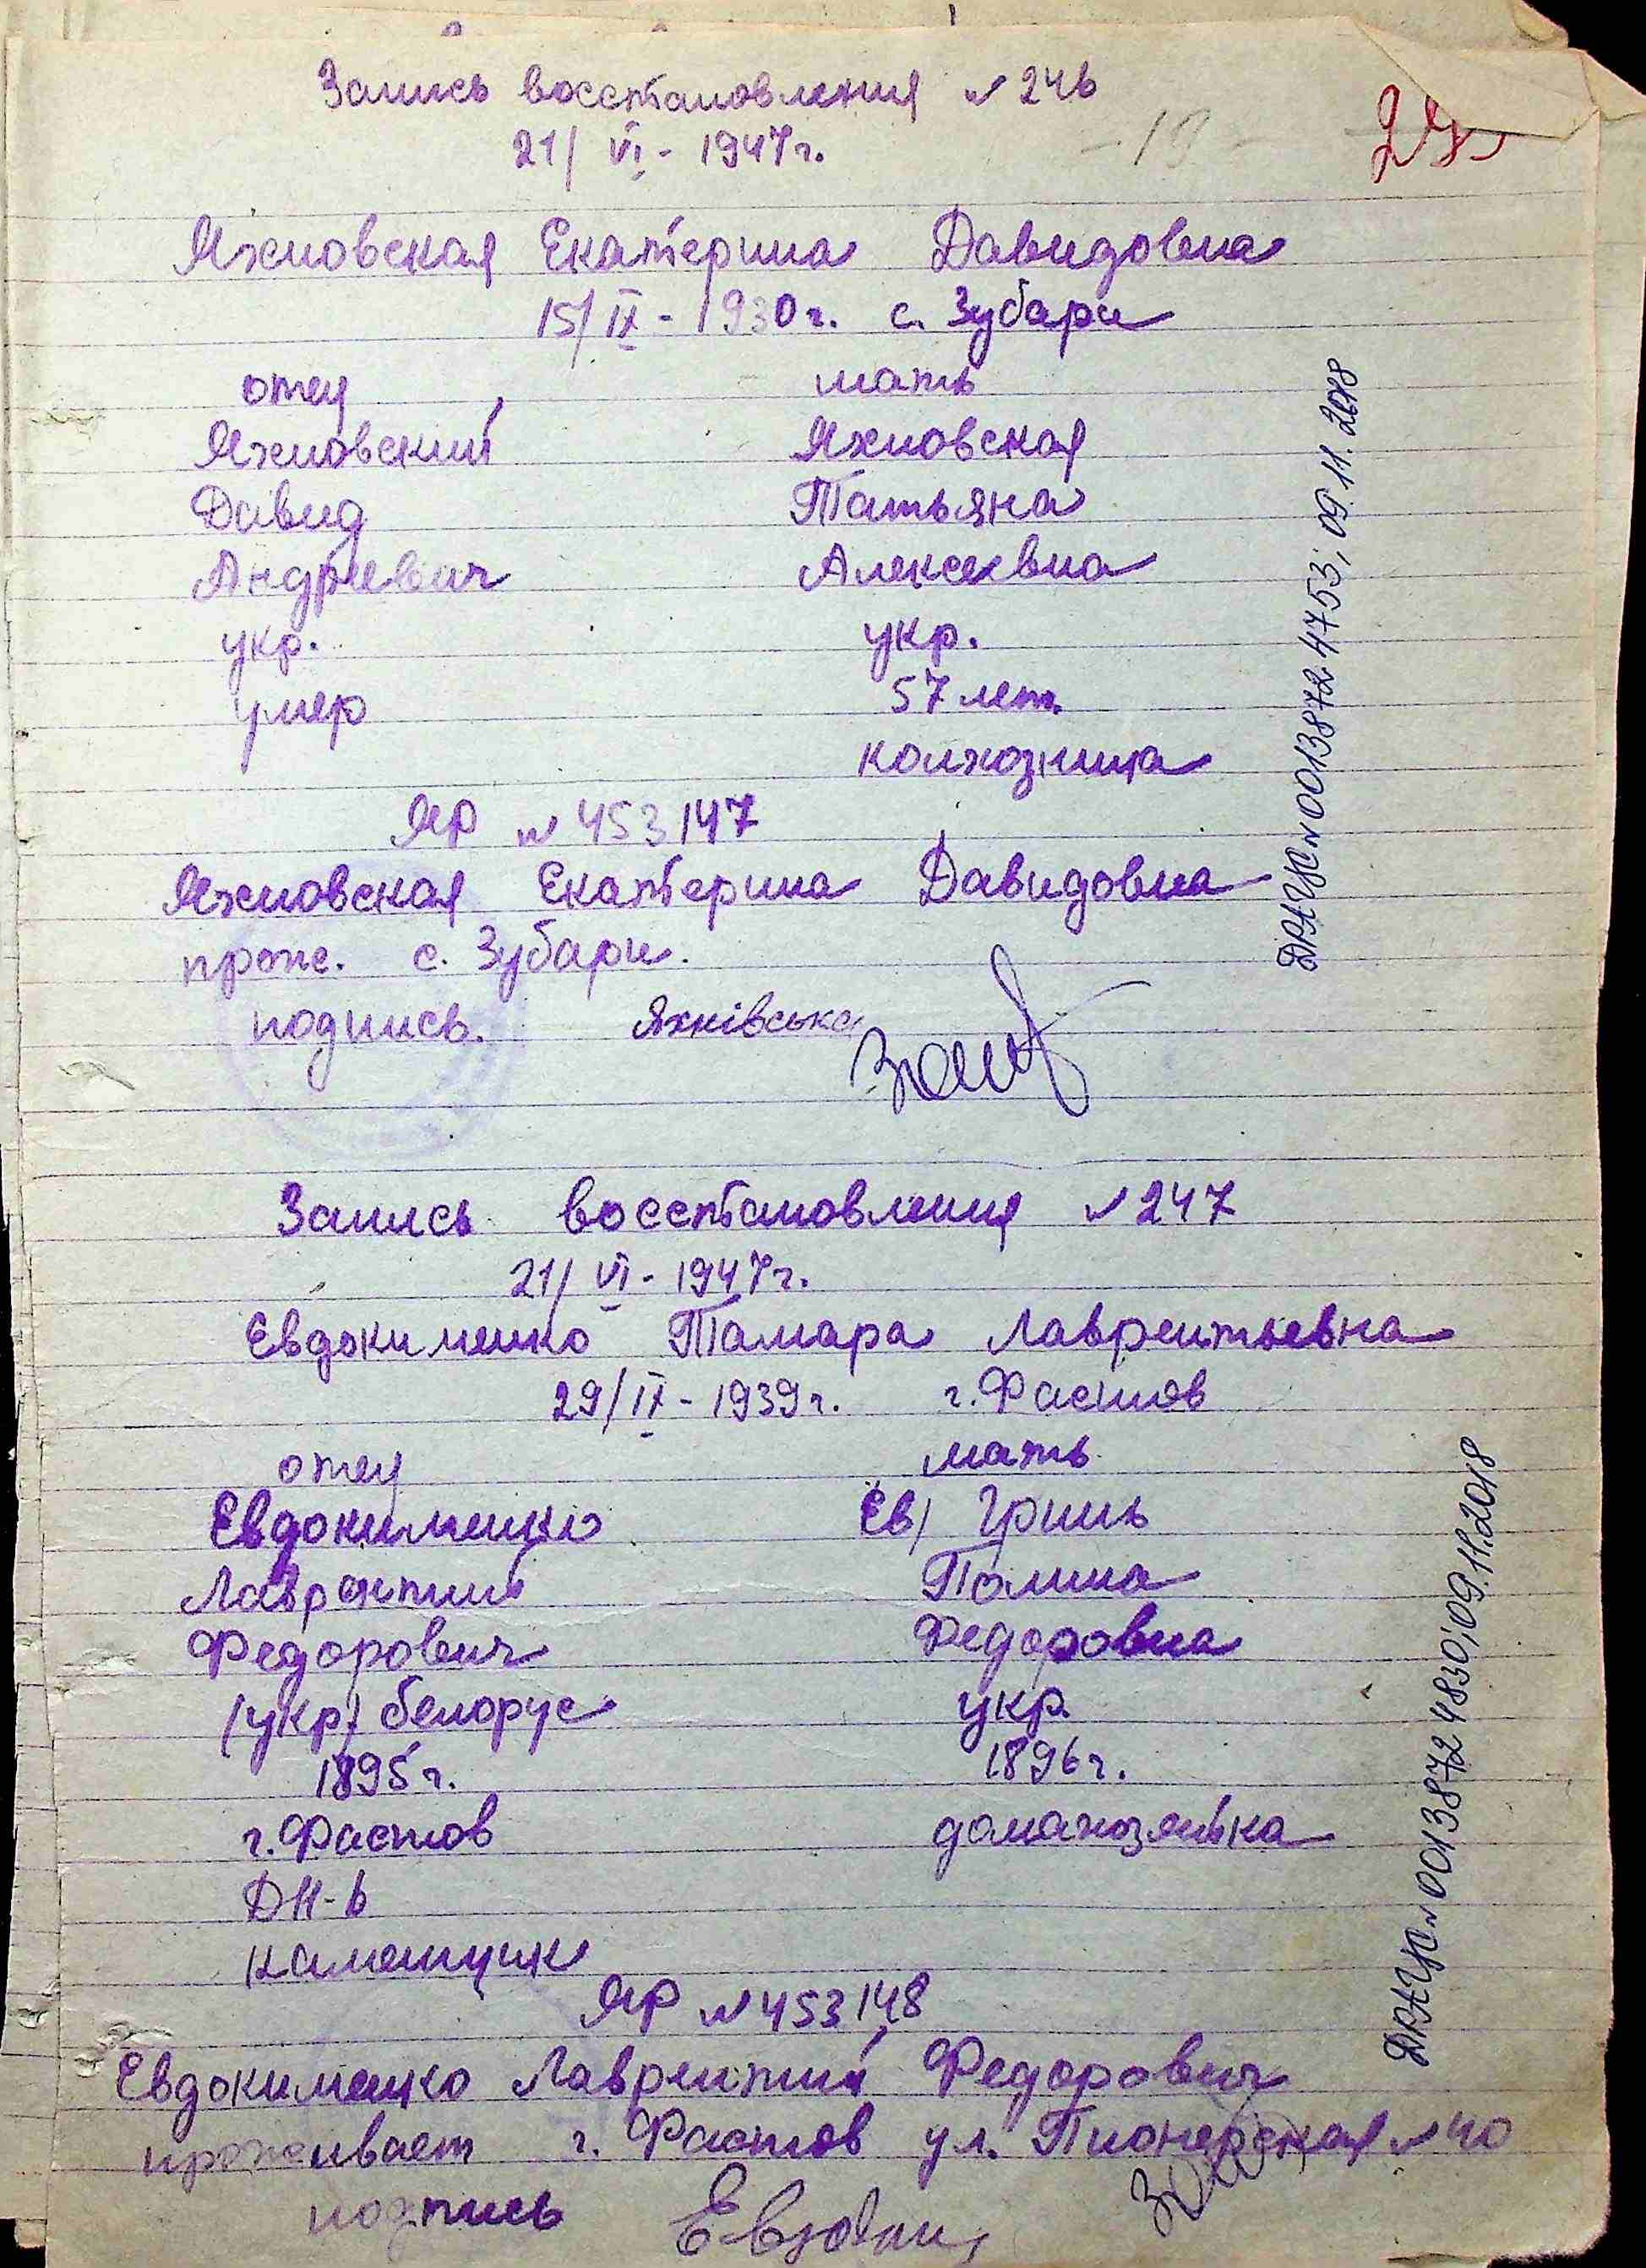 Запись восстановления № 246
21/VI - 1947г.
- 19 -
Яхновская Екатерина Давидовна
15/IX - 1930г. с. Зубари
отец мать
Яхновский Яхновская
Давид Татьяна
Андреевич Алексеевна
укр. укр.
умер 57 лет.
колхозница
ЯР № 453147
Яхновская Екатерина Давидовна
прож. с. Зубари.
подпись. Яхнівська
ДРАЦС №00138724753; 09.11.2018
Запись восстановления № 247
21/VI - 1947г.
Евдокименко Тамара Лаврентьевна
29/IX - 1939г. г. Фастов
отец мать
Евдокименко Ев/ Гринь
Лаврентий Полина
Федорович Федоровна
(укр) белорус укр.
1895г. 1896г.
г. Фастов домахозяйка
ДН-6
каменщик
ЯР № 453148
Евдокименко Лаврентий Федорович
проживает г. Фастов ул. Пионерская № 40
подпись
ДРАЦС №00138724830; 09.11.2018